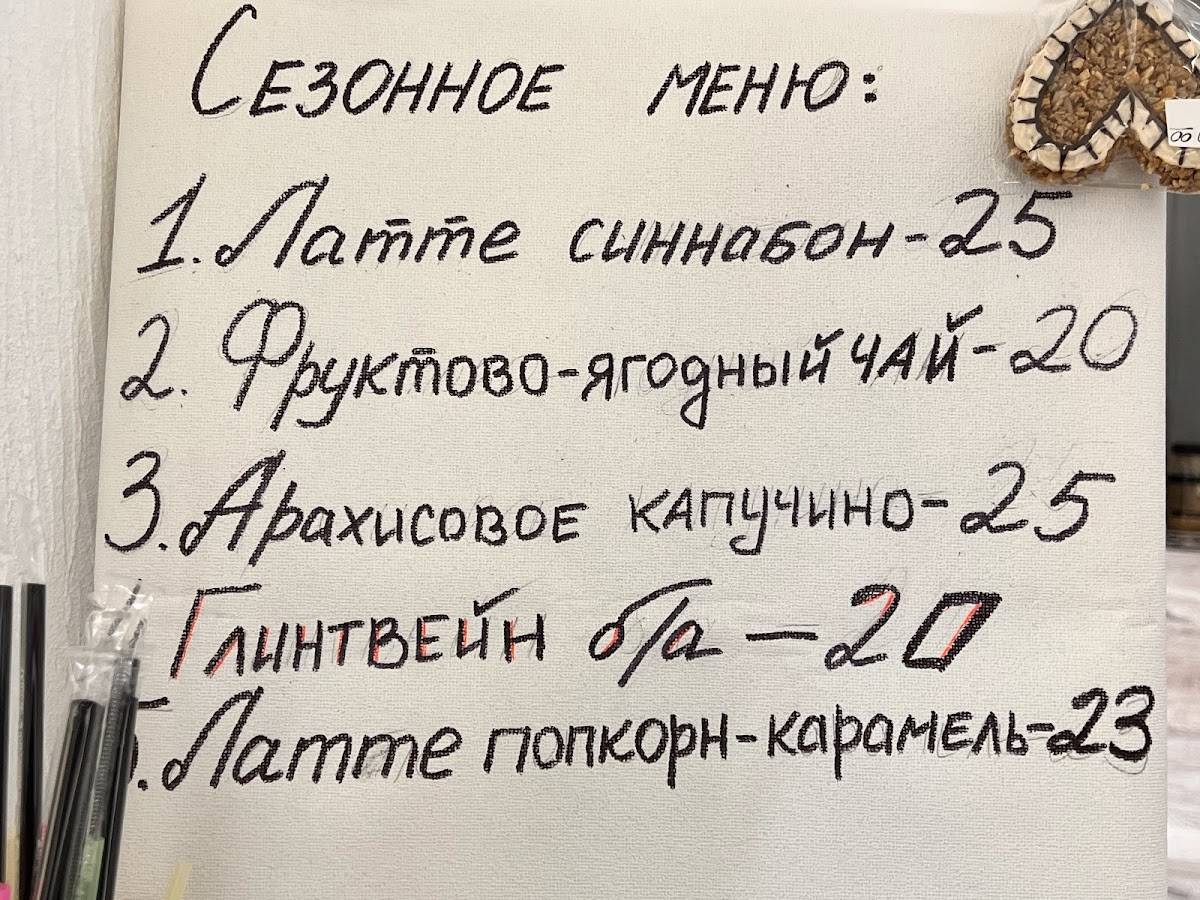 Сезонное меню:
1. Латте синнабон - 25
2. Фруктово-ягодный чай - 20
3. Арахисовое капучино - 25
Глинтвейн б/а — 20
5. Латте попкорн-карамель - 23